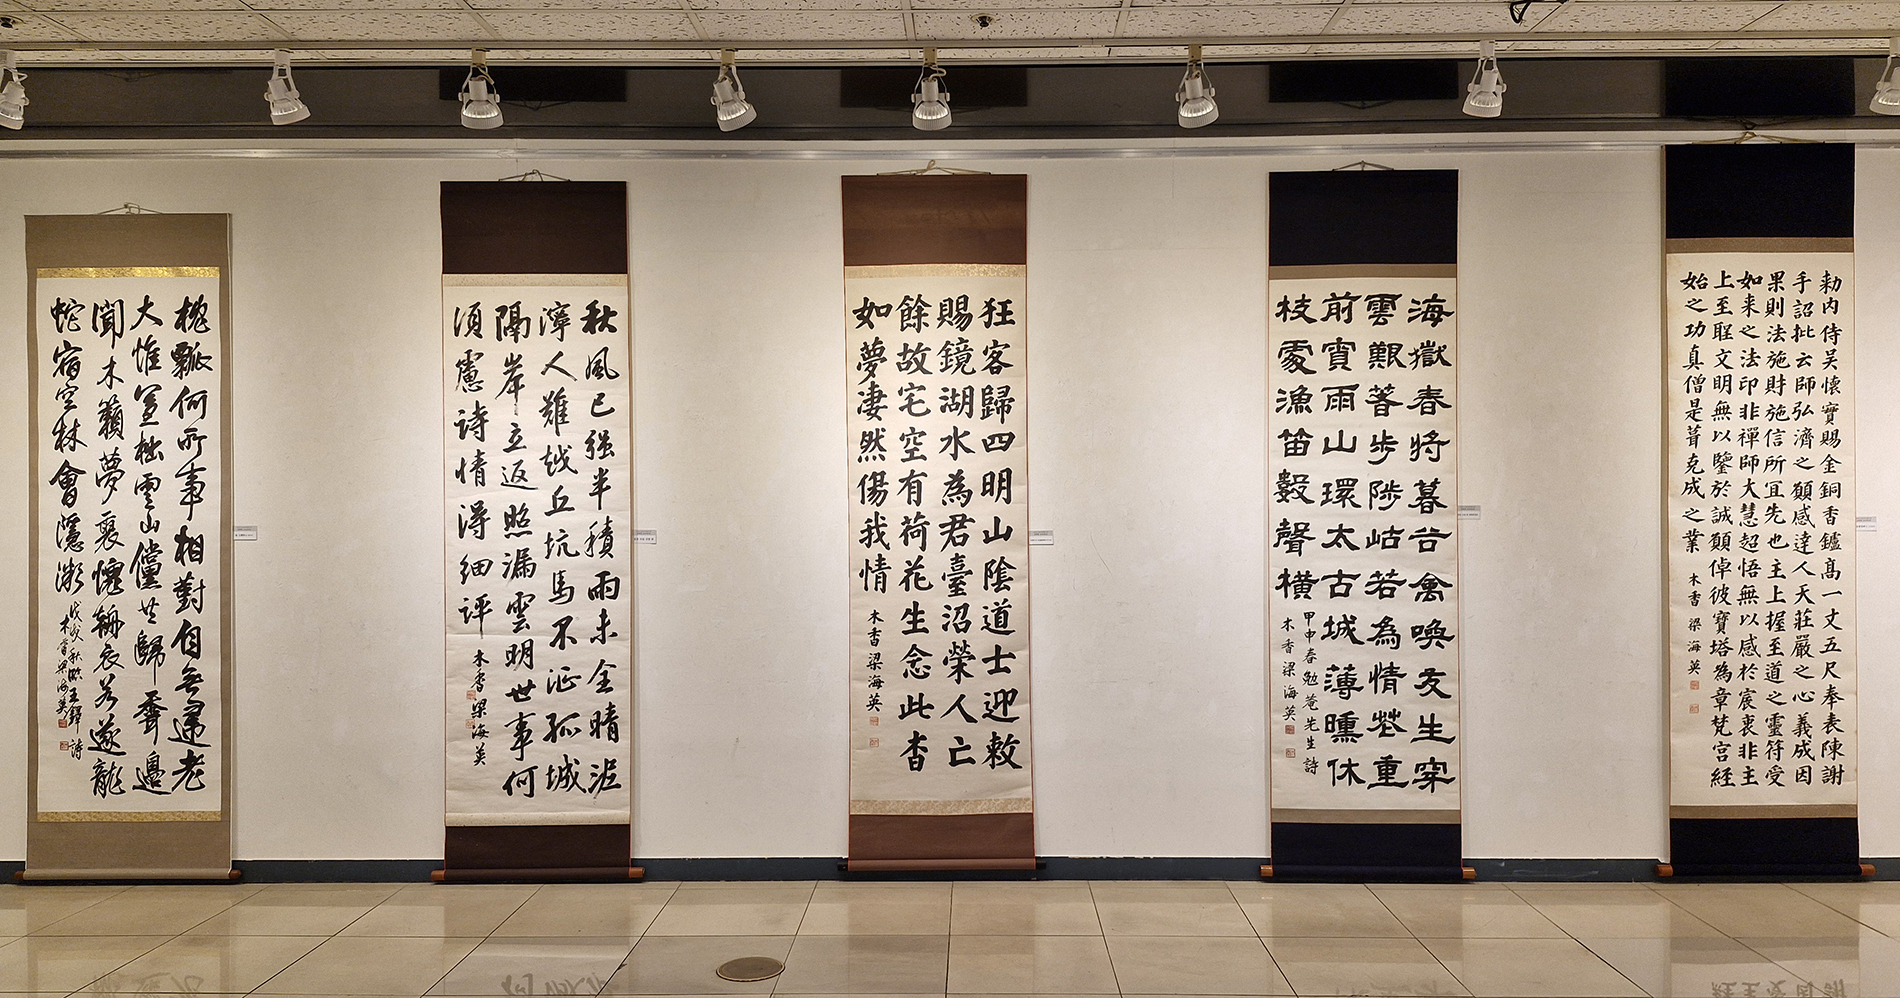 槐瓢何所事相對自無違老
大惟宜拙雲山儻共歸齊邊
聞木籟夢裏愧衣若遂龍
蛇宿空林會隱淤
戊戌秋臨王鐸詩
木香梁海英
秋風已强半積雨未全晴泥
濘人難越丘坑馬不涎孤城
隔岸立返照漏雲明世事何
須慮詩情得細評
木香梁海英
狂客歸四明山陰道士迎敕
賜鏡湖水為君臺沼榮人亡
餘故宅空有荷花生念此杳
如夢凄然傷我情
木香梁海英
海嶽春將暮谷禽喚友生穿
雲艱著步陟岵若為情花重
前宵雨山環太古城薄曛休
枝處漁笛數聲橫
甲申春勉菴先生詩
木香梁海英
勑內侍吴懷實賜金銅香鑪高一丈五尺奉表陳謝
手詔批云師弘濟之願感達人天莊嚴之心義成因
果則法施財施信所宜先也主上握至道之靈符受
如来之法印非禪師大慧超悟無以感於宸衷非主
上至聖文明無以鑒於誠願倬彼寶塔為章梵宫経
始之功真僧是葺克成之業
木香梁海英